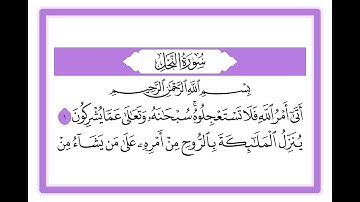 سُورَةُ النَّحْلِ
بِسْمِ اللَّهِ الرَّحْمَٰنِ الرَّحِيمِ
أَتَىٰٓ أَمْرُ ٱللَّهِ فَلَا تَسْتَعْجِلُوهُ ۚ سُبْحَٰنَهُۥ وَتَعَٰلَىٰ عَمَّا يُشْرِكُونَ ١
يُنَزِّلُ ٱلْمَلَٰٓئِكَةَ بِٱلرُّوحِ مِنْ أَمْرِهِۦ عَلَىٰ مَن يَشَآءُ مِنْ